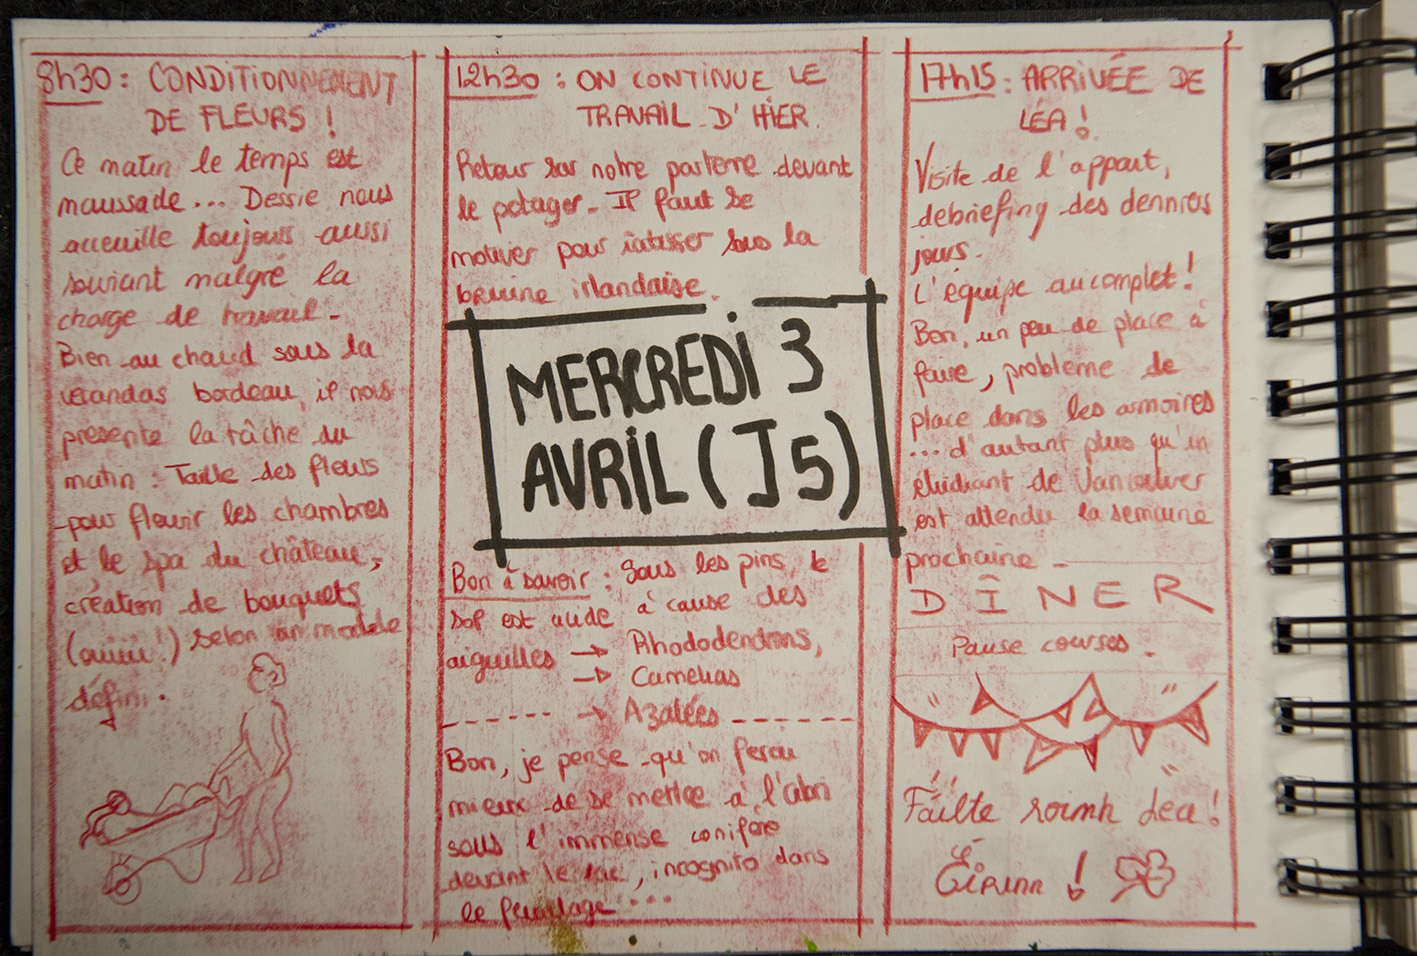 8h30 : CONDITIONNEMENT
DE FLEURS !
Ce matin le temps est
maussade... Dessie nous
acceuille toujours aussi
souriant malgré la
charge de travail.
Bien au chaud sous la
verandas bordeau, il nous
présente la tâche du
matin : Taille des fleurs
pour fleurir les chambres
et le spa du château,
création de bouquets
(ouiiii!) selon un modèle
défini.
12h30 : ON CONTINUE LE
TRAVAIL D'HIER.
Retour sur notre parterre devant
le potager. Il faut se
motiver pour ratisser sous la
bruine irlandaise.
MERCREDI 3
AVRIL (J5)
Bon à savoir : Sous les pins, le
sol est acide à cause des
aiguilles → Rhododendrons,
→ Camelias
→ Azalées
Bon, je pense qu'on ferai
mieux de se mettre à l'abri
sous l'immense conifère
devant le lac, incognito dans
le feuillage...
17h15 : ARRIVÉE DE
LÉA !
Visite de l'appart,
debriefing des derniers
jours.
L'équipe au complet !
Bon, un peu de place à
faire, problème de
place dans les armoires
... d'autant plus qu'un
étudiant de Vancouver
est attendu la semaine
prochaine.
DÎNER
Pause courses.
Failte Lea !
Éirinn !